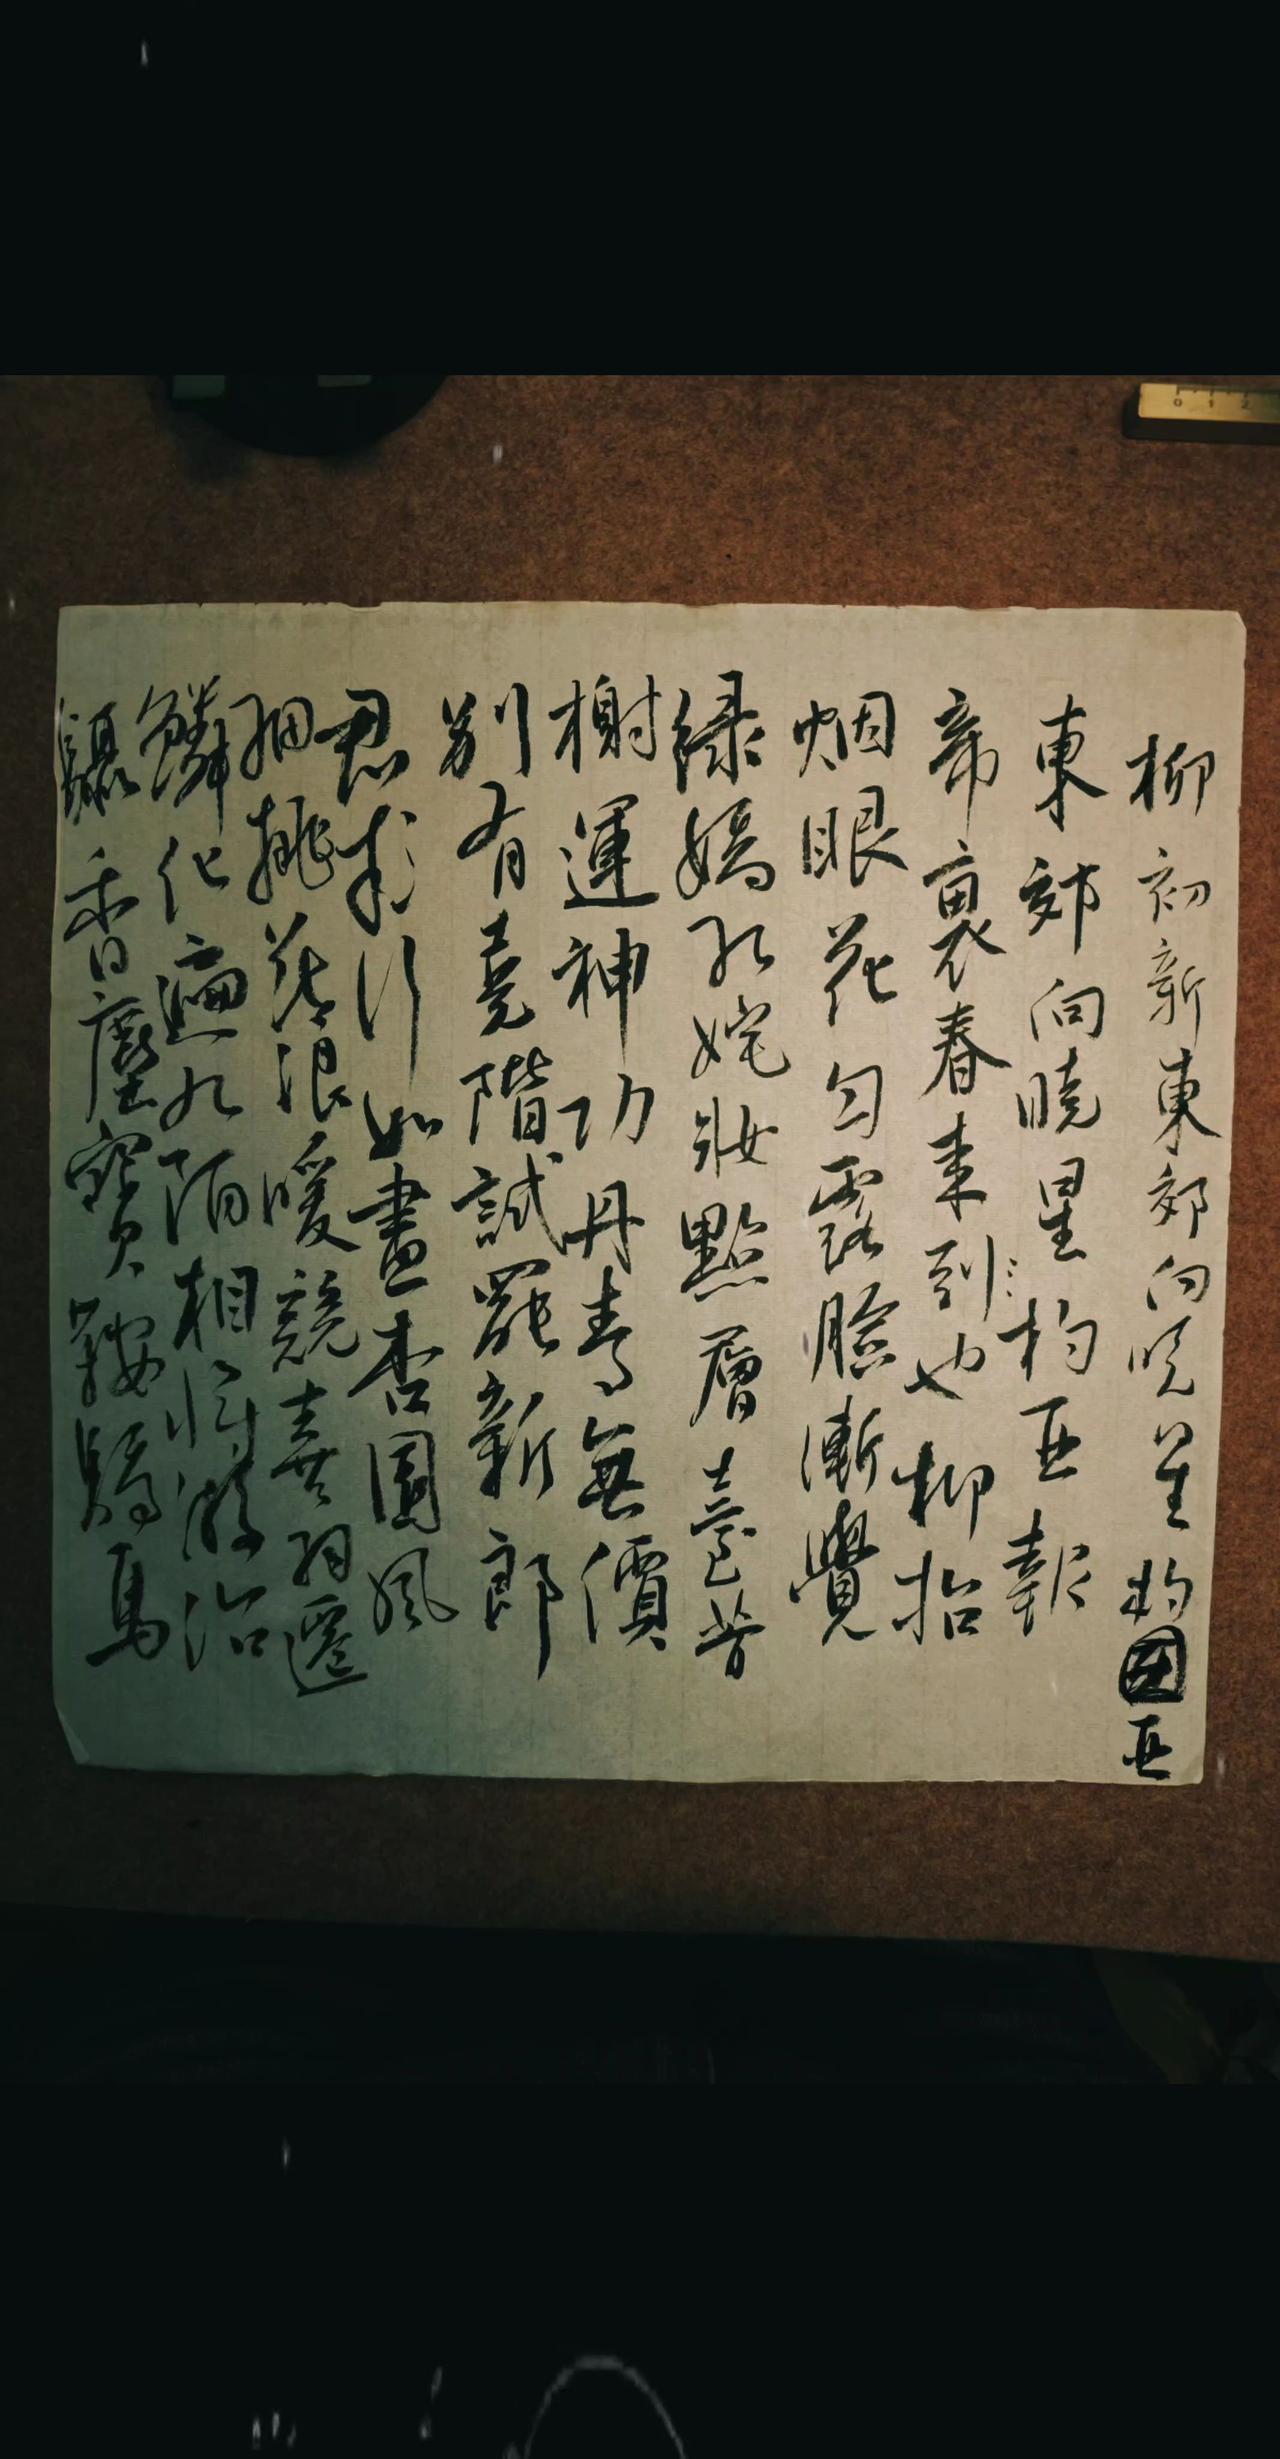 柳初新東郊向晓星杓亞
東郊向曉星杓亞報
帝裏春来到也柳抬
烟眼花匀露臉漸覺
緑嬌紅姹妝點層臺芳
榭運神功丹青無價
别有堯階試罷新郎
君成行如畫杏園風
細桃花浪暖競喜羽遷
鱗化遍九陌相將游冶
驟香塵寶鞍驕馬
0 1 2